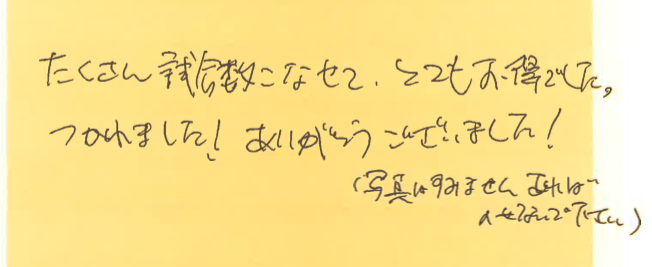 たくさん試合数こなせて、とてもお得でした。
つかれました！ありがとうございました！
(写真はすみませんあれば
のせないで下さい)